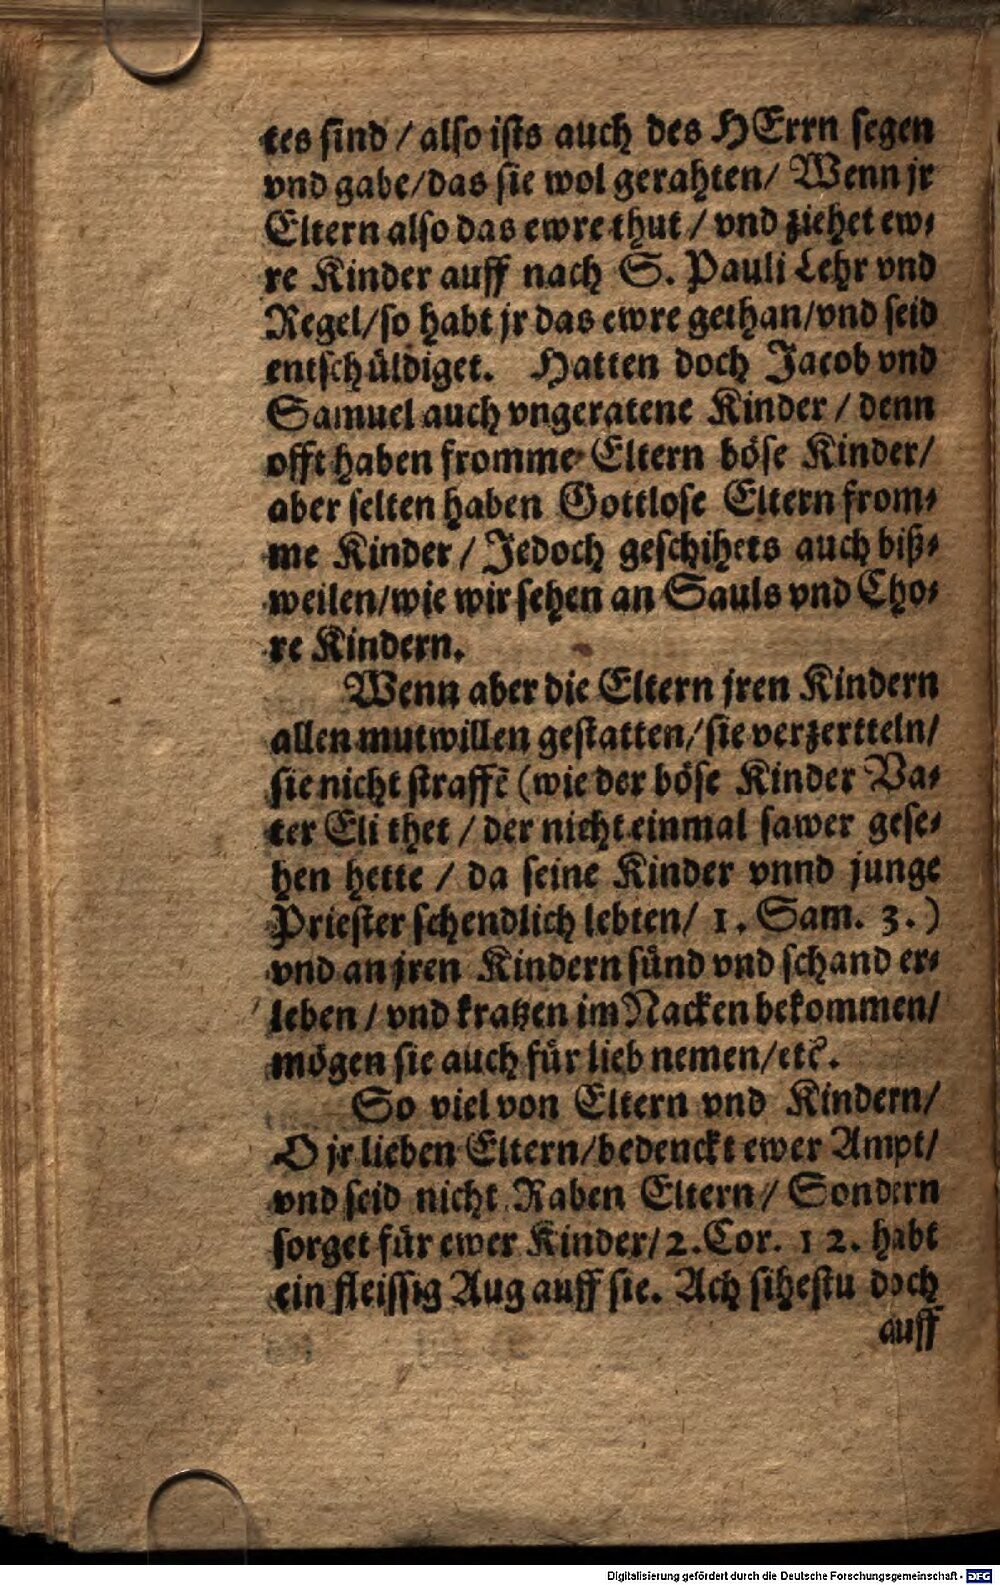 tes sind / also ists auch des HErrn segen
vnd gabe/das sie wol gerahten/ Wenn jr
Eltern also das ewre thut / vnd ziehet ew-
re Kinder auff nach S. Pauli Lehr vnd
Regel/so habt jr das ewre gethan/vnd seid
entschüldiget. Hatten doch Jacob vnd
Samuel auch vngeratene Kinder / denn
offt haben fromme Eltern böse Kinder/
aber selten haben Gottlose Eltern from-
me Kinder / Jedoch geschihets auch biß-
weilen/wie wir sehen an Sauls vnd Cho-
re Kindern.
Wenn aber die Eltern jren Kindern
allen mutwillen gestatten/sie verzertteln/
sie nicht straffẽ (wie der böse Kinder Va-
ter Eli thet / der nicht einmal sawer gese-
hen hette / da seine Kinder vnnd junge
Priester schendlich lebten/ 1. Sam. 3.)
vnd an jren Kindern sünd vnd schand er-
leben / vnd kratzen im Nacken bekommen/
mögen sie auch für lieb nemen/etc.
So viel von Eltern vnd Kindern/
O jr lieben Eltern/bedenckt ewer Ampt/
vnd seid nicht Raben Eltern/ Sondern
sorget für ewer Kinder/2.Cor. 12. habt
ein fleissig Aug auff sie. Ach sihestu doch
auff
Digitalisierung gefördert durch die Deutsche Forschungsgemeinschaft - DFG